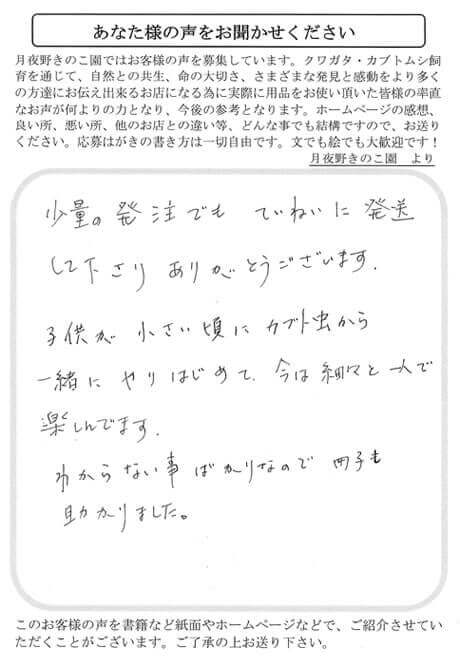 あなた様の声をお聞かせください
月夜野きのこ園ではお客様の声を募集しています。クワガタ・カブトムシ飼
育を通じて、自然との共生、命の大切さ、さまざまな発見と感動をより多く
の方達にお伝え出来るお店になる為に実際に用品をお使い頂いた皆様の率直
なお声が何よりの力となり、今後の参考となります。ホームページの感想、
良い所、悪い所、他のお店との違い等、どんな事でも結構ですので、お送り
ください。応募はがきの書き方は一切自由です。文でも絵でも大歓迎です！
月夜野きのこ園　より
少量の発注でも ていねいに発送
して下さり ありがとうございます.
子供が 小さい頃に カブト虫から
一緒に やりはじめて、今は細々と一人で
楽しんでます.
わからない事ばかりなので 冊子も
助かりました。
このお客様の声を書籍など紙面やホームページなどで、ご紹介させてい
ただくことがございます。ご了承の上お送り下さい。